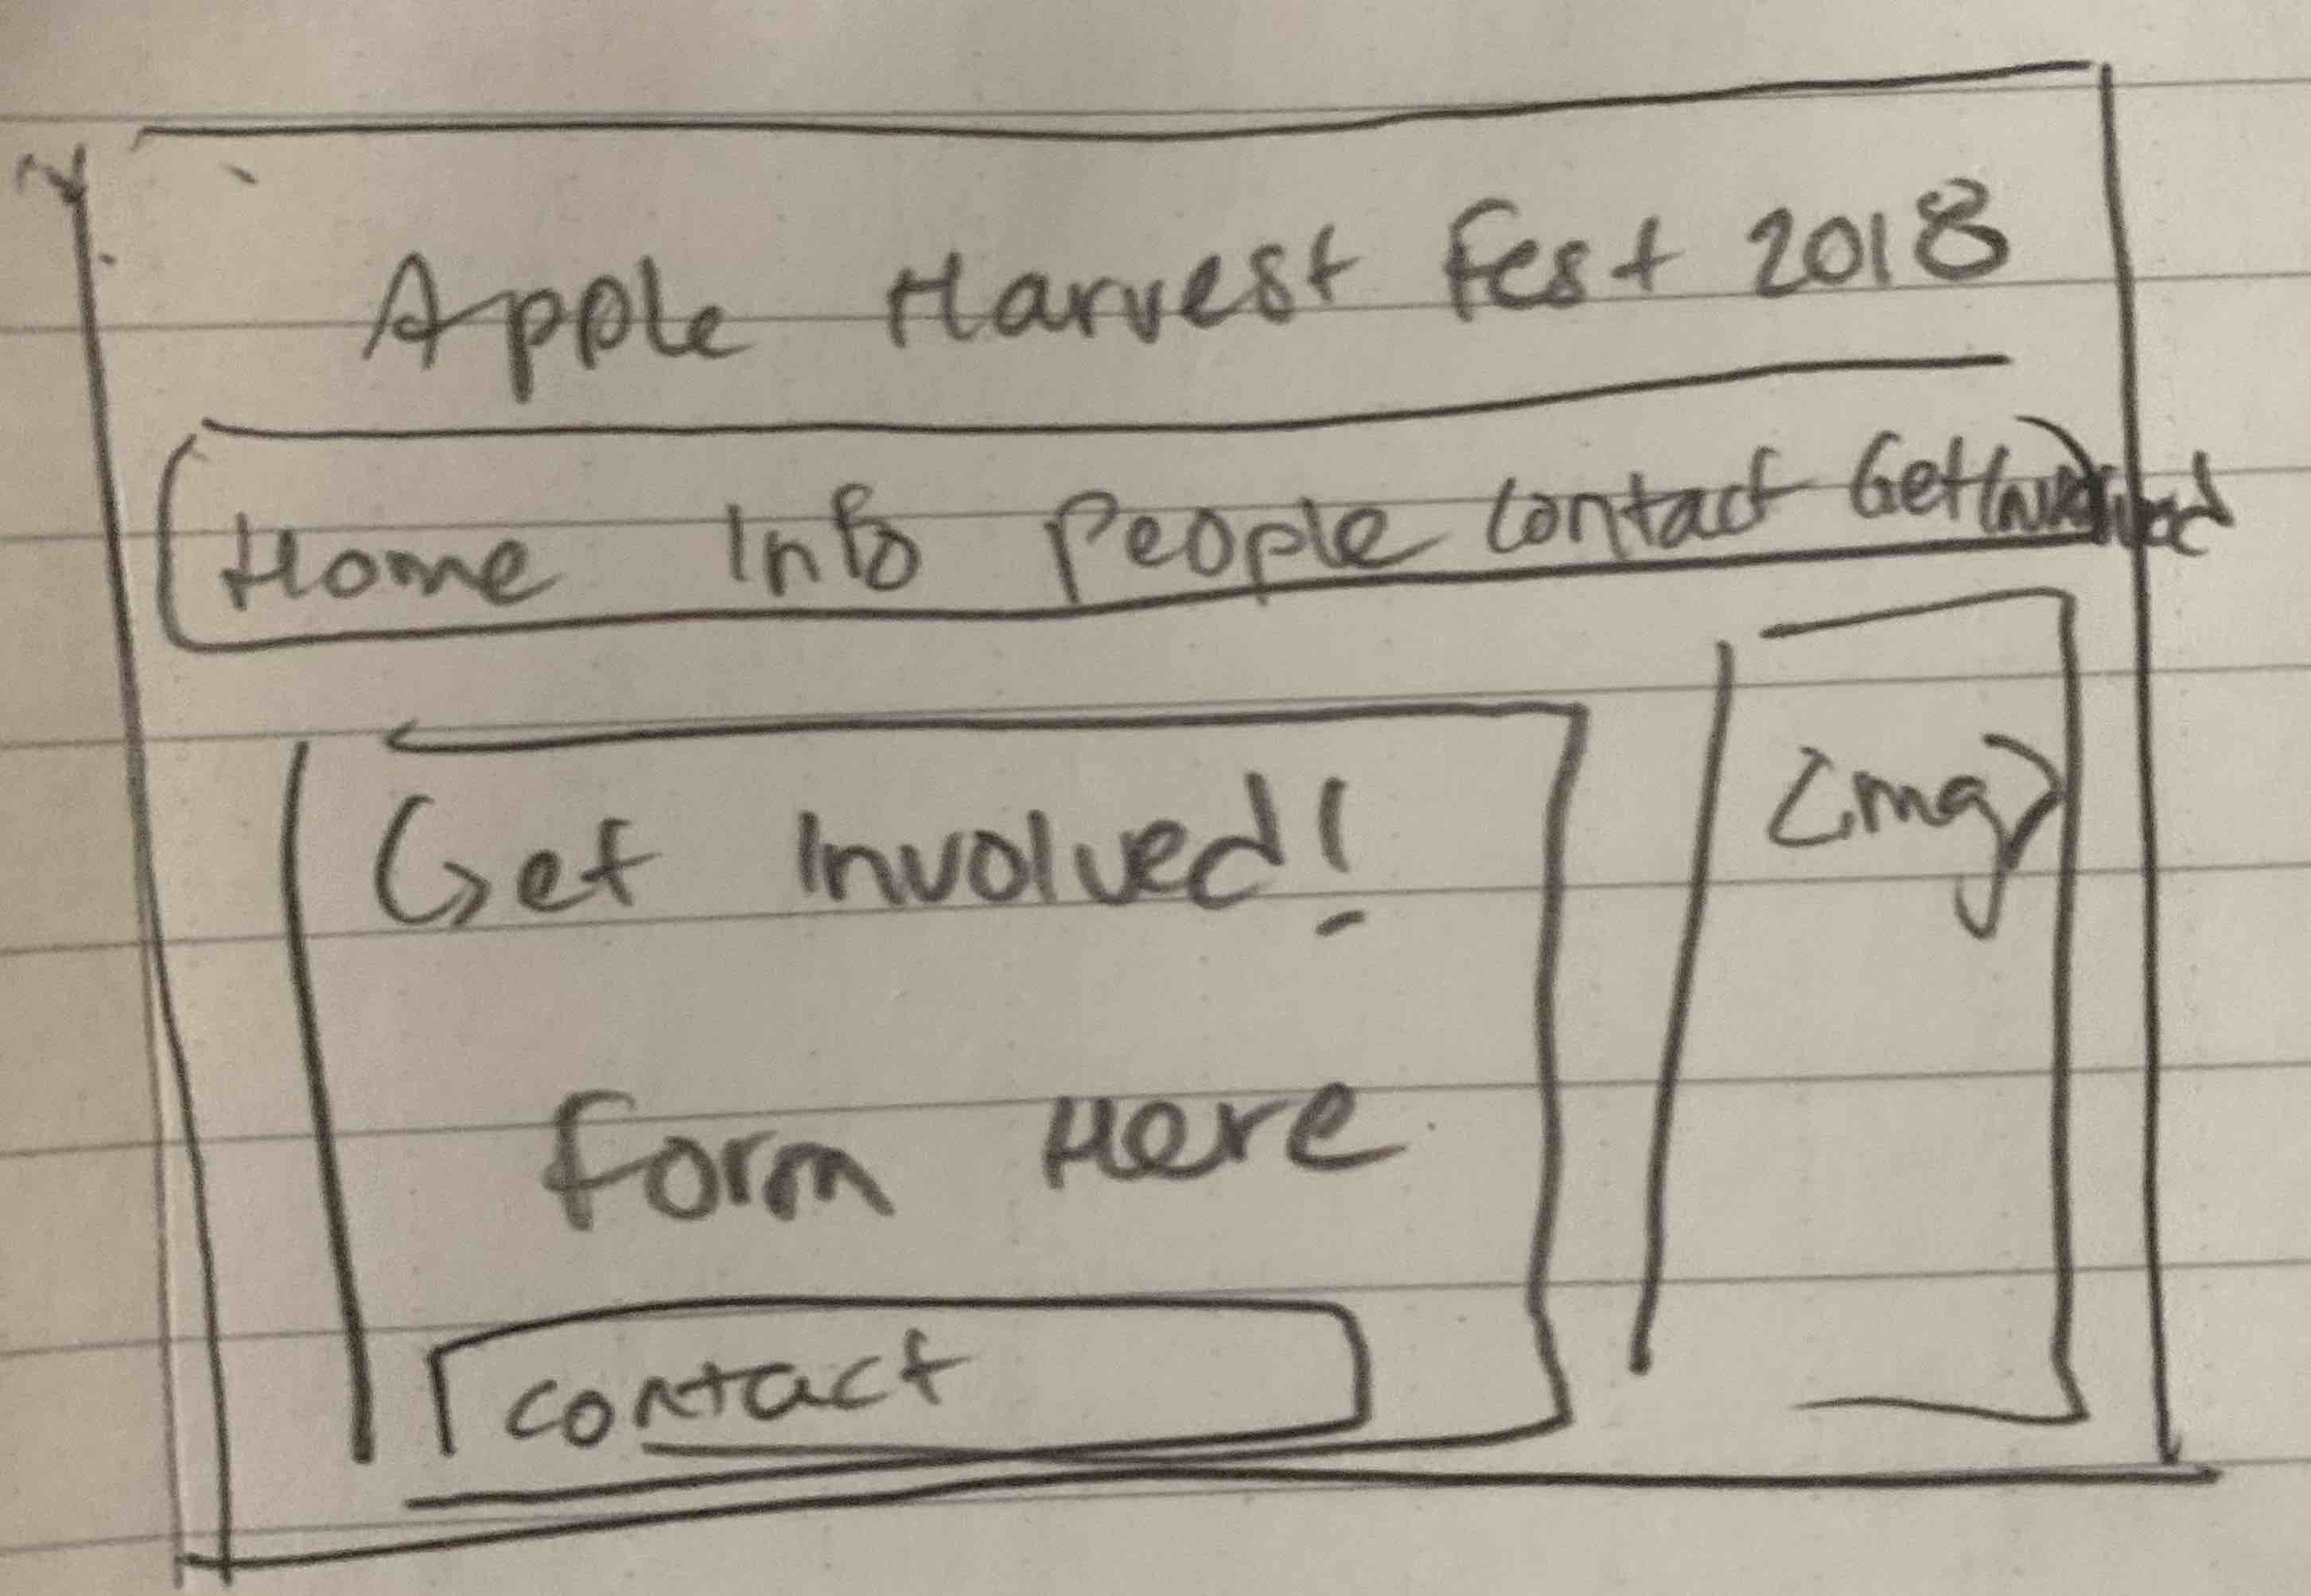 Apple Harvest Fest 2018
Home Info People Contact Get Involved
Get Involved!
Img
Form Here
Contact